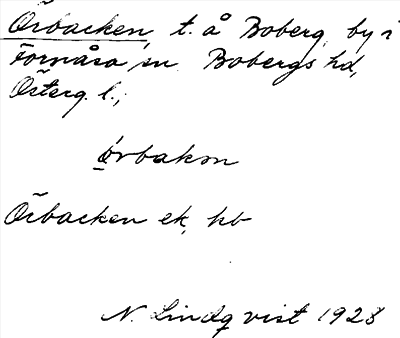 Örbacken, t. å Boberg, by i
Fornåsa sn. Bobergs hd,
Österg. l.;
ǿrbakən
Örbacken ek, kb
N. Lindqvist 1928